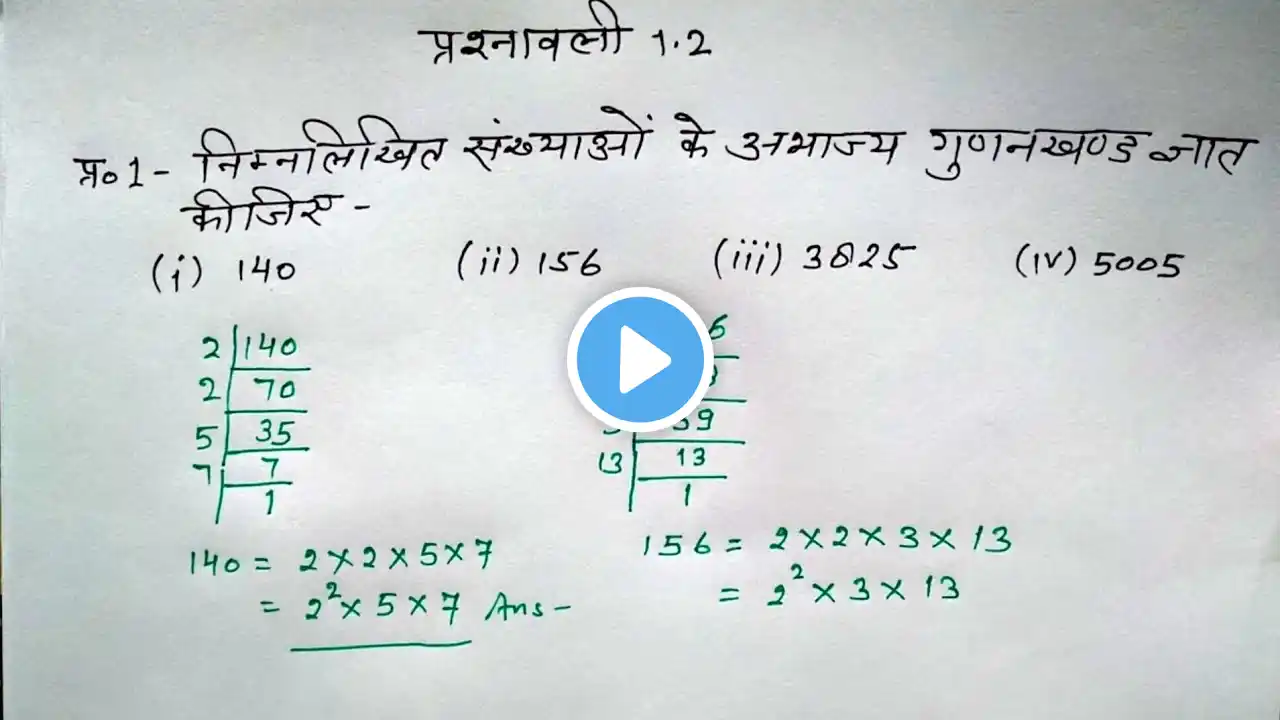 प्रश्नावली 1.2
प्र॰1- निम्नलिखित संख्याओं के अभाज्य गुणनखण्ड ज्ञात
कीजिए -
(i) 140 (ii) 156 (iii) 3825 (iv) 5005
2 140
2 70
5 35
7 7
1
6
39
13 13
1
140 = 2×2×5×7
= 2²×5×7 Ans-
156 = 2×2×3×13
= 2²×3×13